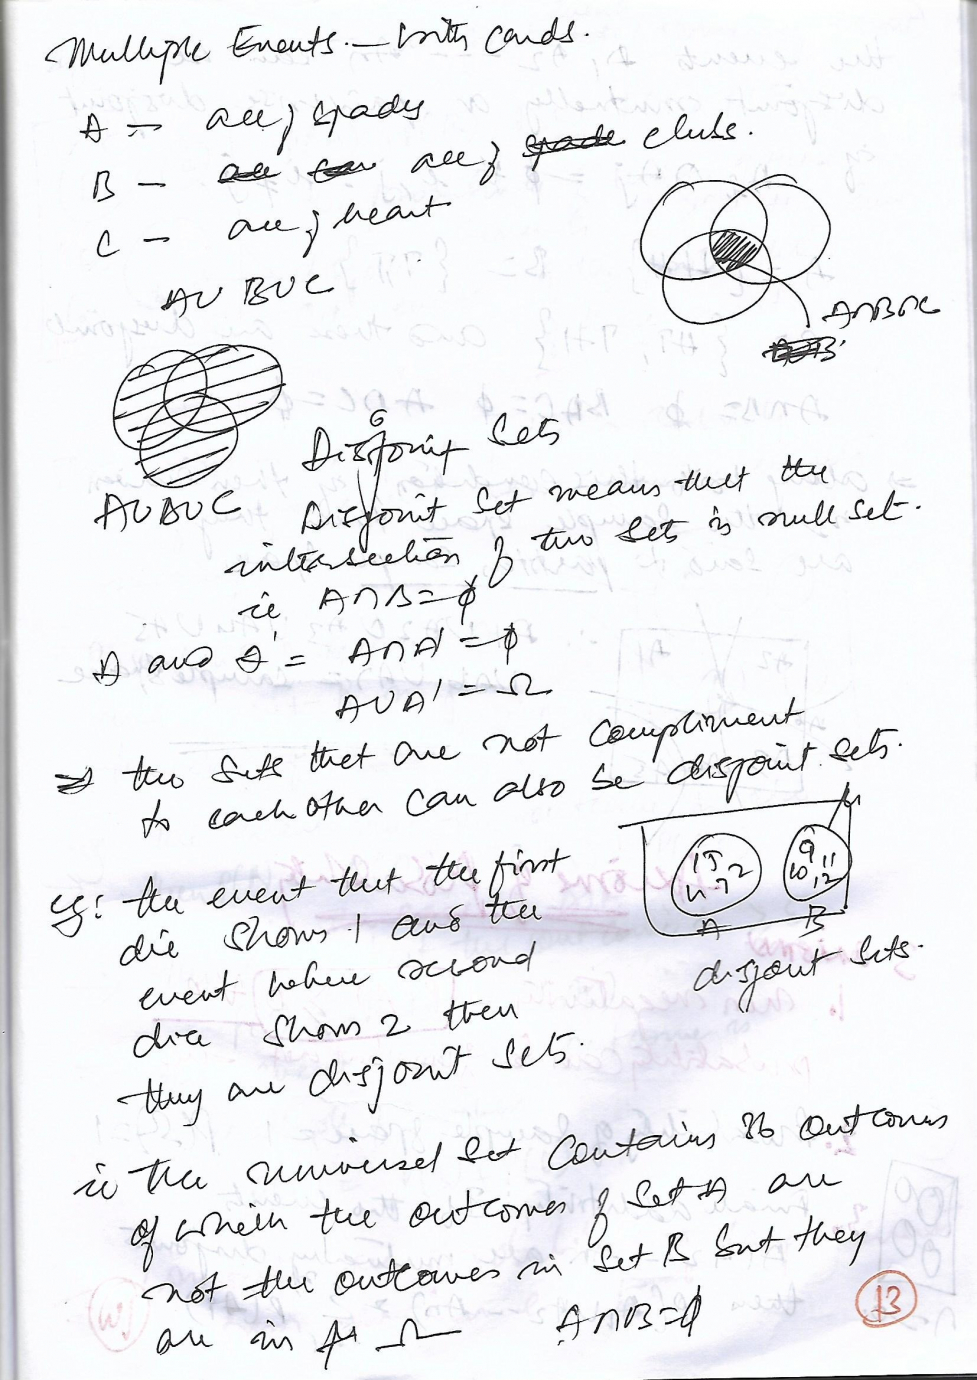 Multiple Events. — with cards.
A — all of spades
B — all of clubs.
C — all of heart
AUBUC
A∩B∩C
AUBUC
Disjoint Sets
Disjoint Set means that the
intersection of two sets is null set.
ie A∩B=ϕ
A and A' = A∩A' = ϕ
AUA' = Ω
⇒ two sets that are not compliment
to each other can also be disjoint sets.
eg: the event that the first
die shows 1 and the
event where second
dice shows 2 then
they are disjoint sets.
15
4 7 2
A
9
10 11
12
B
disjoint sets.
ie The universal set contains 36 outcomes
of which the outcomes of set A are
not the outcomes in set B but they
are in Ω A∩B=ϕ
13